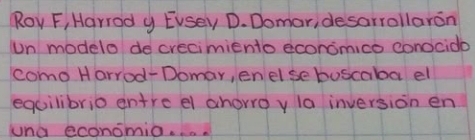 Roy F, Harrod y Evsey D. Domar, desarrollarón
un modelo de crecimiento económico conocido
como Harrod-Domar, en el se buscaba el
equilibrio entre el ahorro y la inversión en
una económia....